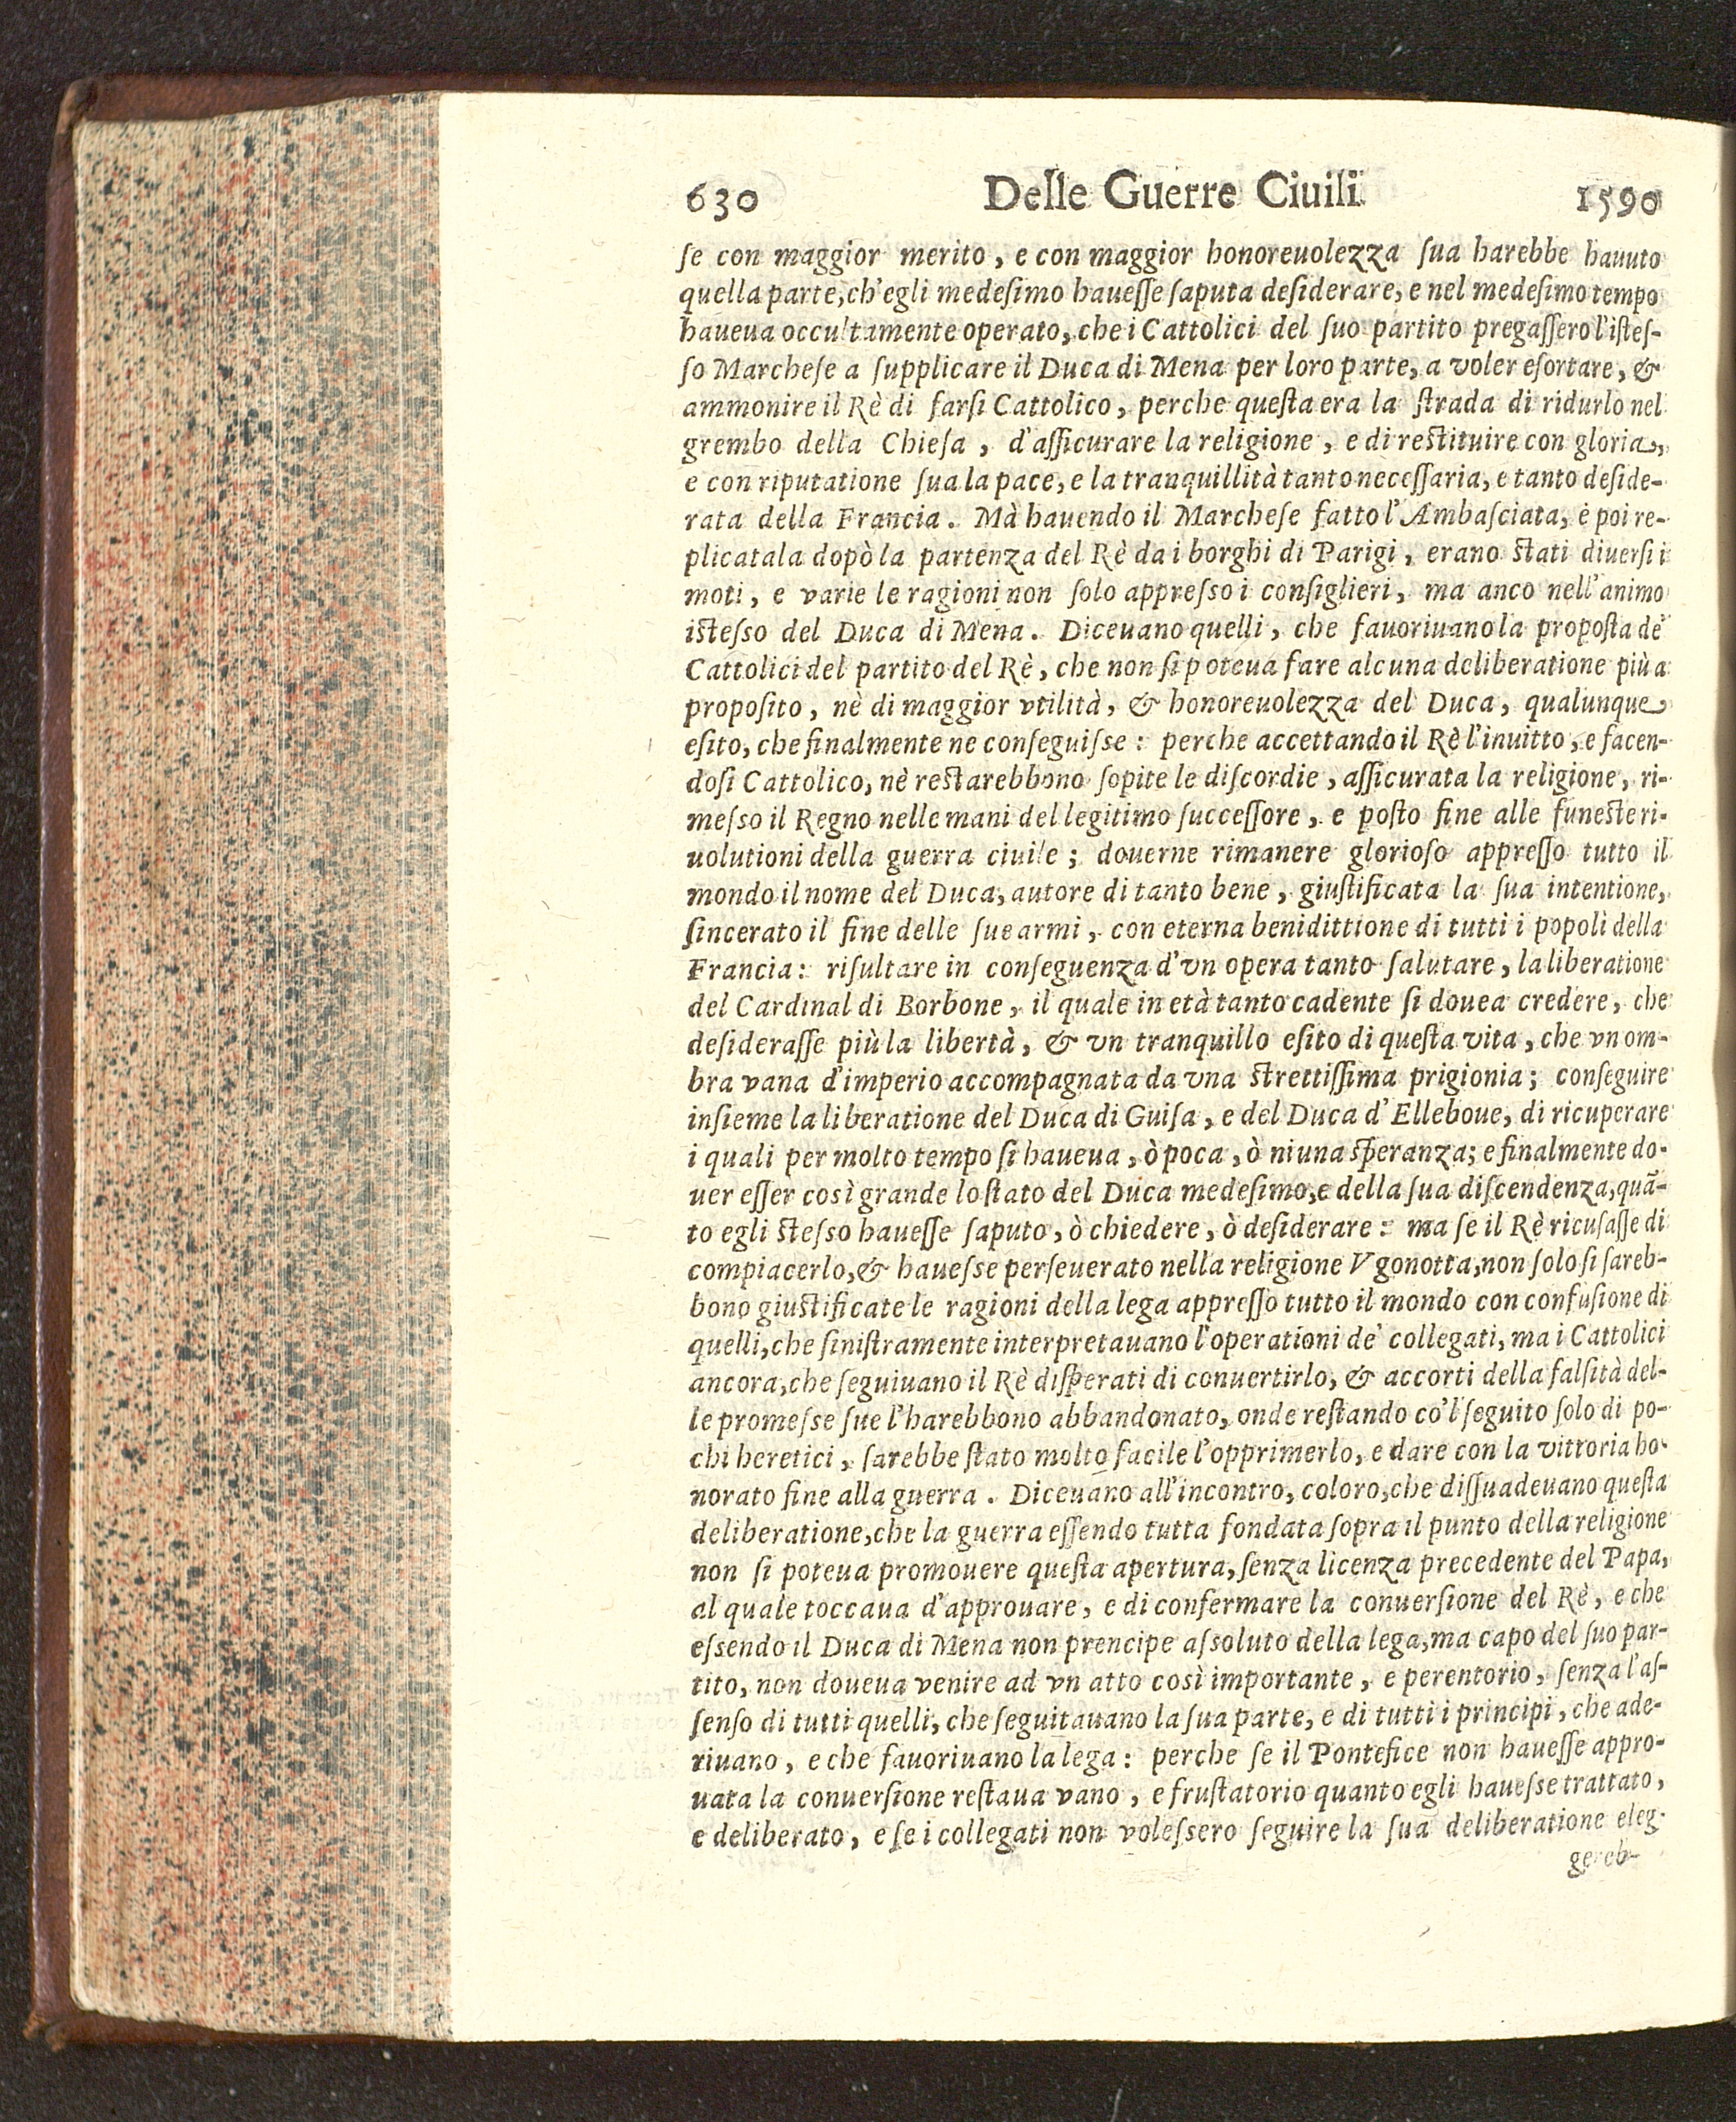 630 Delle Guerre Ciuili 1590
ſe con maggior merito, e con maggior honoreuolezza ſua harebbe hauuto
quella parte, ch'egli medeſimo haueſſe ſaputa deſiderare, e nel medeſimo tempo
haueua occultamente operato, che i Cattolici del ſuo partito pregaſſero l'iſteſ-
ſo Marcheſe a ſupplicare il Duca di Mena per loro parte, a voler eſortare, &
ammonire il Rè di farſi Cattolico, perche queſta era la ſtrada di ridurlo nel
grembo della Chieſa, d'aſſicurare la religione, e di reſtituire con gloria,
e con riputatione ſua la pace, e la tranquillità tanto neceſſaria, e tanto deſide-
rata della Francia. Mà hauendo il Marcheſe fatto l'Ambaſciata, è poi re-
plicatala dopò la partenza del Rè da i borghi di Parigi, erano ſtati diuerſi i
moti, e varie le ragioni non ſolo appreſso i conſiglieri, ma anco nell'animo
iſteſso del Duca di Mena. Diceuano quelli, che fauoriuano la propoſta de'
Cattolici del partito del Rè, che non ſi poteua fare alcuna deliberatione più a
propoſito, nè di maggior vtilità, & honoreuolezza del Duca, qualunque
eſito, che finalmente ne conſeguiſse: perche accettando il Rè l'inuitto, e facen-
doſi Cattolico, nè reſtarebbono ſopite le diſcordie, aſſicurata la religione, ri-
meſso il Regno nelle mani del legitimo ſucceſſore, e poſto fine alle funeſte ri-
uolutioni della guerra ciuile; douerne rimanere glorioſo appreſſo tutto il
mondo il nome del Duca, autore di tanto bene, giuſtificata la ſua intentione,
ſincerato il fine delle ſue armi, con eterna benidittione di tutti i popoli della
Francia: riſultare in conſeguenza d'vn opera tanto ſalutare, la liberatione
del Cardinal di Borbone, il quale in età tanto cadente ſi douea credere, che
deſideraſſe più la libertà, & vn tranquillo eſito di queſta vita, che vn om-
bra vana d'imperio accompagnata da vna ſtrettiſſima prigionia; conſeguire
inſieme la liberatione del Duca di Guiſa, e del Duca d'Elleboue, di ricuperare
i quali per molto tempo ſi haueua, ò poca, ò niuna ſperanza; e finalmente do-
uer eſſer così grande lo ſtato del Duca medeſimo, e della ſua diſcendenza, quã-
to egli ſteſso haueſſe ſaputo, ò chiedere, ò deſiderare: ma ſe il Rè ricuſaſſe di
compiacerlo, & haueſse perſeuerato nella religione Vgonotta, non ſolo ſi ſareb-
bono giuſtificate le ragioni della lega appreſſo tutto il mondo con confuſione di
quelli, che ſiniſtramente interpretauano l'operationi de' collegati, ma i Cattolici
ancora, che ſeguiuano il Rè diſperati di conuertirlo, & accorti della falſità del-
le promeſse ſue l'harebbono abbandonato, onde reſtando co'l ſeguito ſolo di po-
chi heretici, ſarebbe ſtato molto facile l'opprimerlo, e dare con la vittoria ho-
norato fine alla guerra. Diceuano all'incontro, coloro, che diſſuadeuano queſta
deliberatione, che la guerra eſſendo tutta fondata ſopra il punto della religione
non ſi poteua promouere queſta apertura, ſenza licenza precedente del Papa,
al quale toccaua d'approuare, e di confermare la conuerſione del Rè, e che
eſsendo il Duca di Mena non prencipe aſsoluto della lega, ma capo del ſuo par-
tito, non doueua venire ad vn atto così importante, e perentorio, ſenza l'aſ-
ſenſo di tutti quelli, che ſeguitauano la ſua parte, e di tutti i principi, che ade-
riuano, e che fauoriuano la lega: perche ſe il Pontefice non haueſſe appro-
uata la conuerſione reſtaua vano, e fruſtatorio quanto egli haueſse trattato,
e deliberato, e ſe i collegati non voleſsero ſeguire la ſua deliberatione eleg-
gereb-